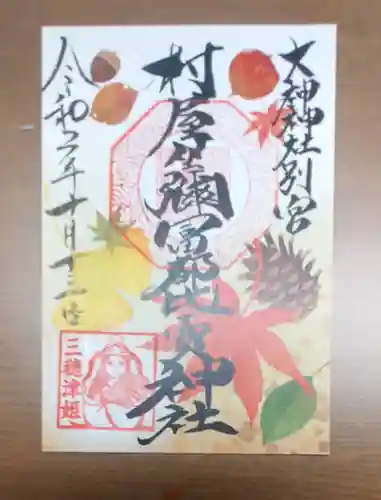 大神神社別宮
村屋坐彌冨都比賣神社
令和六年十月十三日
三穂津姫